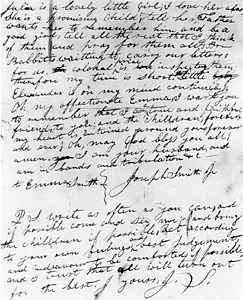 is a lovely little girl, I love her
She is a promising child, tell her Father
wants her to remember him and be a
good girl, tell all the rest that I think
of them and pray for them all, Br
Babbit is waiting to our letter
for us colonel is
for my turn is short little
Elexander is on my mind continuly.
Oh my affectionate Emma, I want you
to remember that I am a true and faithful
friend, to you and the Chilldren, forever,
my heart is intwined around yours forever
and ever, Oh may God bless you all
amen I am your husband and
am in bands and tribulation &c
to Emma Smith Joseph Smith Jr
P S write as often as you can, and
if possible come and see me, and bring
the chilldren if possible, act according
to your own feelings and best Judgement,
and endeavour to be comforted if possible,
and I trust that all will turn out
for the best, yours, J.S.